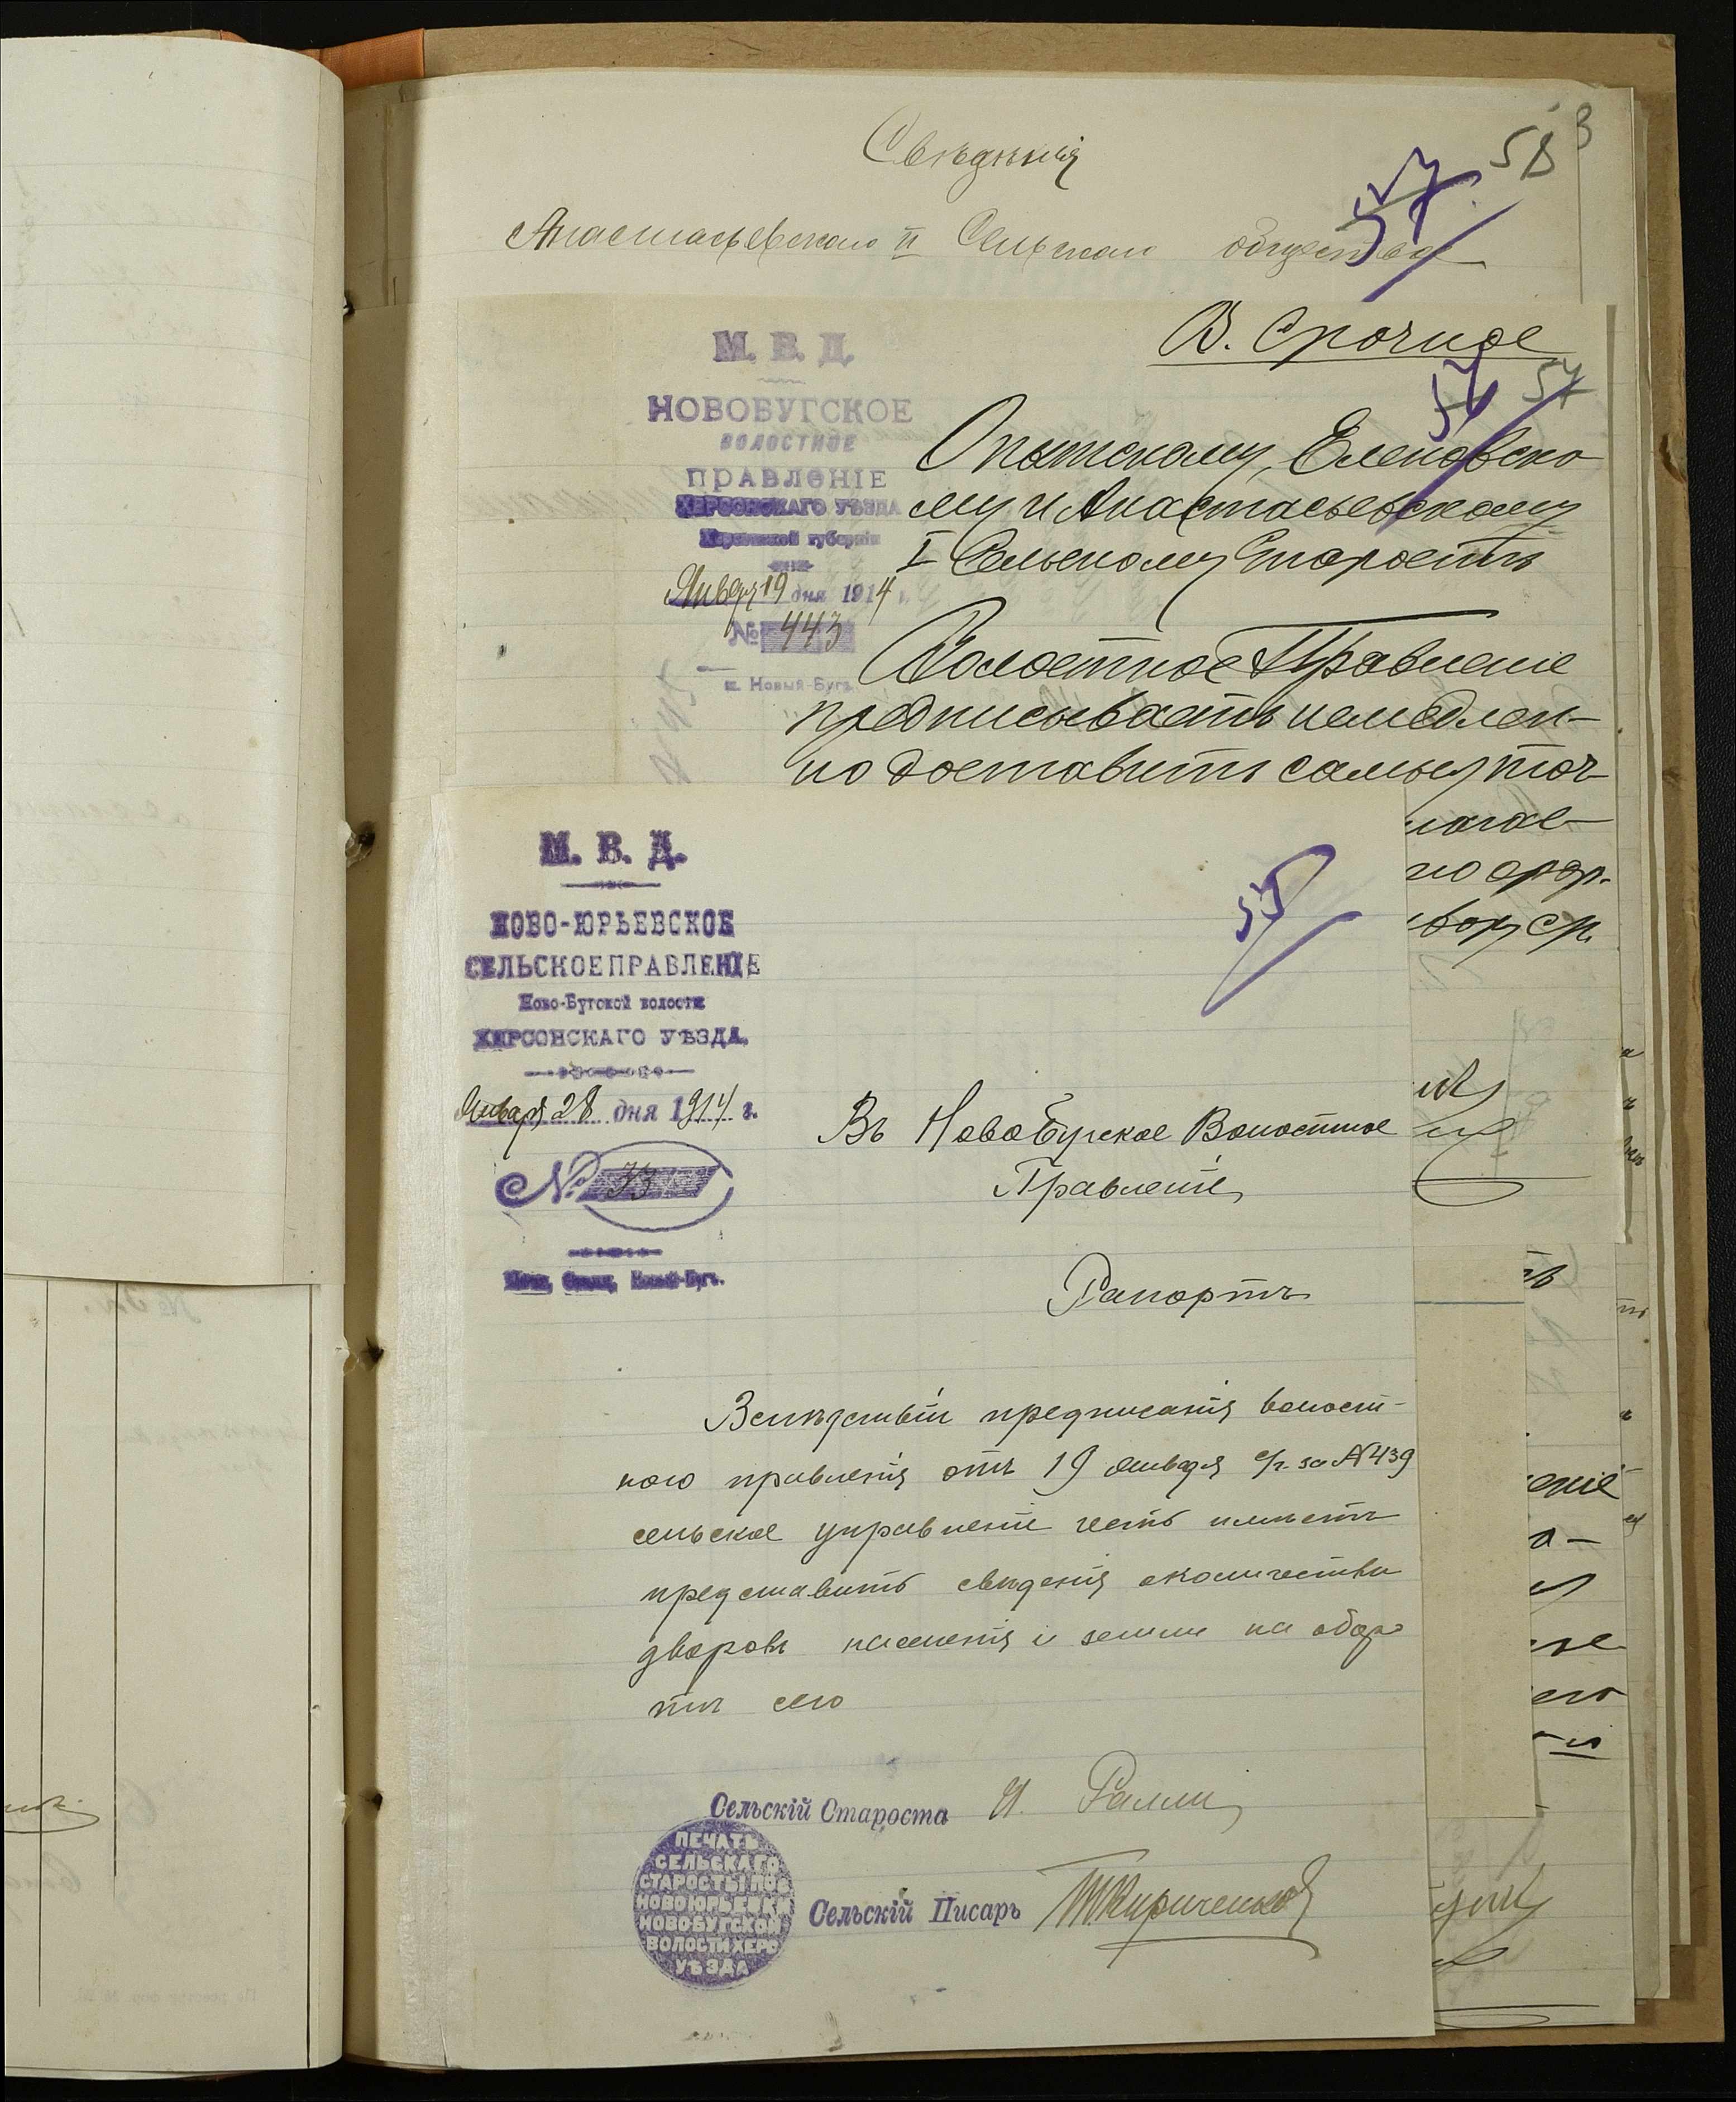 58
57
Свѣдѣнія
Анастасьевскаго II Сельскаго общества
В. Срочное
М. В. Д.
НОВОБУГСКОЕ
ВОЛОСТНОЕ
ПРАВЛЕНІЕ
ХЕРСОНСКАГО УѢЗДА
Херсонской губерніи
Января 19 дня 1914 г.
№ 443
м. Новый-Бугъ.
56
57
Опытскому, Еленовско
му и Анастасьевскому
I Сельскому Старостѣ
Волостное Правленіе
предписываетъ немедлен-
но доставить самыя точ
М. В. Д.
НОВО-ЮРЬЕВСКОЕ
СЕЛЬСКОЕ ПРАВЛЕНІЕ
Ново-Бугской волости
ХЕРСОНСКАГО УѢЗДА.
Января 28 дня 1914 г.
№ 33
55
Въ Новобугское Волостное
Правленіе
Рапортъ
Вслѣдствіи предписанія волост-
ного правленія отъ 19 января с/г. за № 439
сельское управленіе честь имѣетъ
представить свѣденія околичества
дворовъ населенія и земли на обор
тѣ сего
Сельскій Староста И. Ралли
Сельскій Писарь Кириченко
ПЕЧАТЬ
СЕЛЬСКАГО
СТАРОСТЫ ПОС
НОВОЮРЬЕВКИ
НОВОБУГСКОЙ
ВОЛОСТИ ХЕРС
УѢЗДА